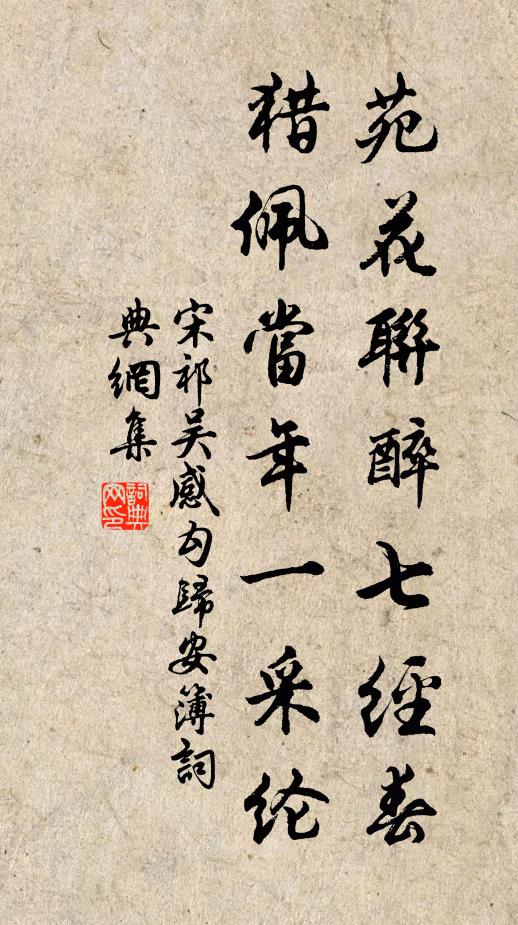 苑花聯醉七經春
猎佩當年一采纶
宋祁吴感勾歸安簿詞
典網集
詞典網印